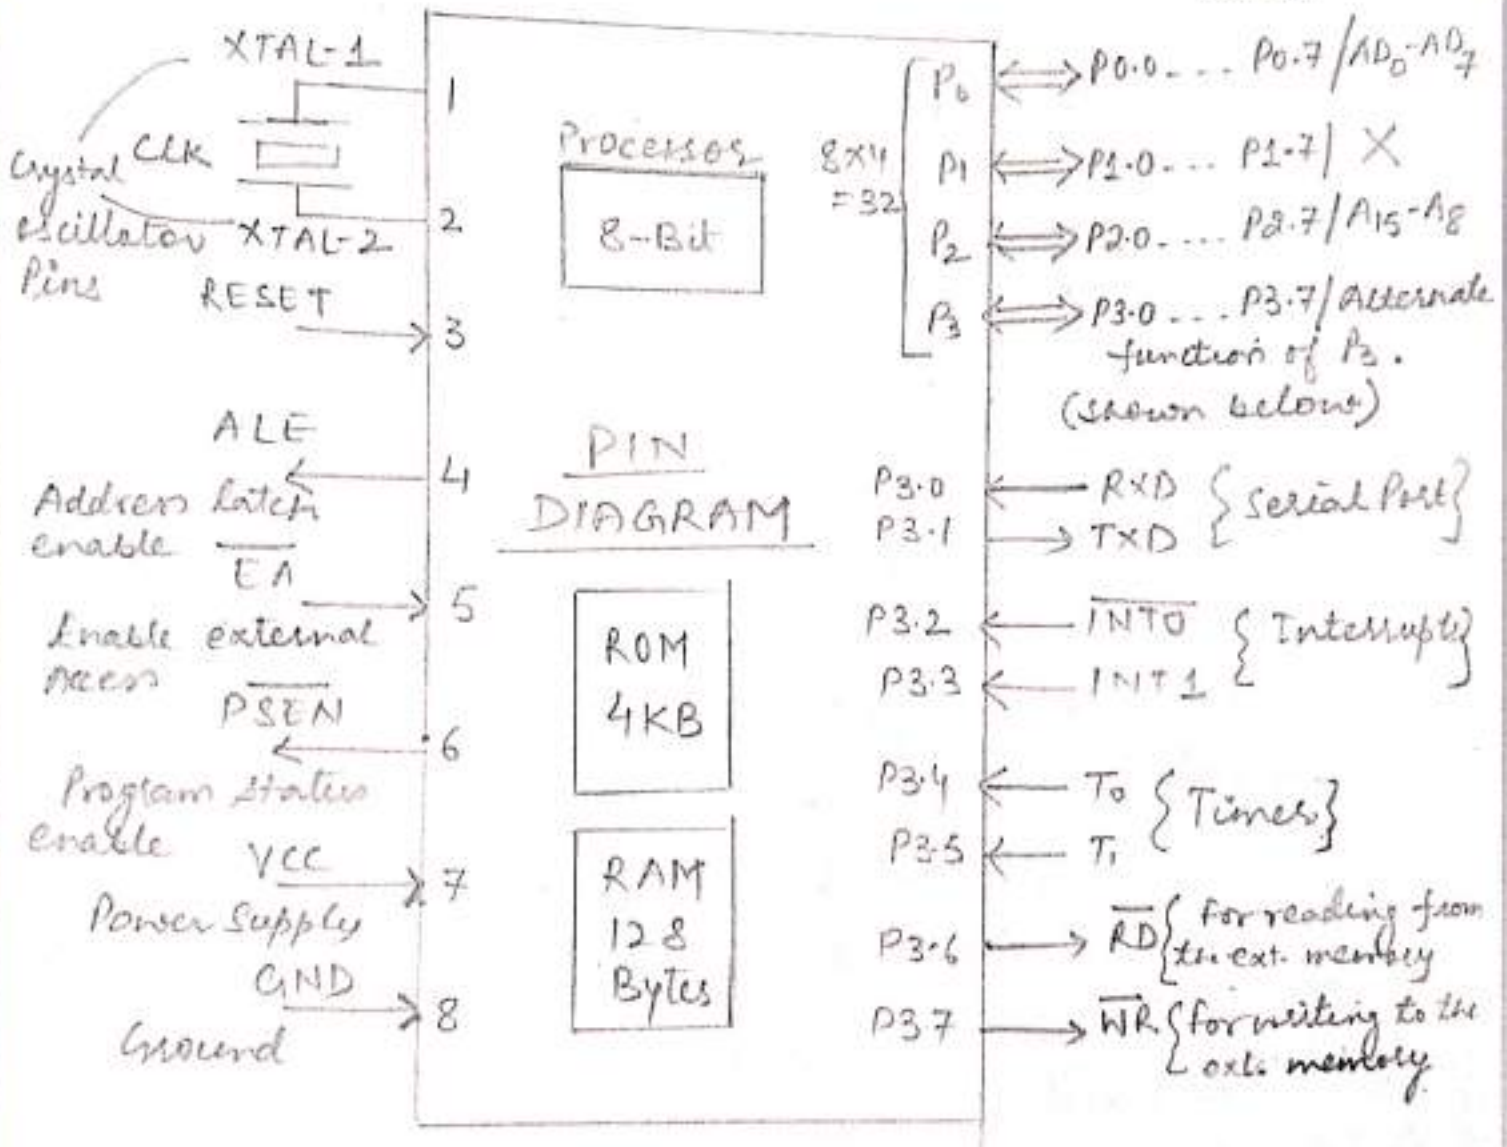 XTAL-1
1
CLK
Crystal
oscillator
Pins
2
XTAL-2
RESET
3
ALE
4
Address Latch
enable
EA
5
Enable external
Access
PSEN
6
Program Status
enable
VCC
7
Power Supply
GND
8
Ground
Processor
8-Bit
PIN
DIAGRAM
ROM
4KB
RAM
128
Bytes
8x4
=32
P0 P0.0.... P0.7/AD0-AD7
P1 P1.0.... P1.7/X
P2 P2.0.... P2.7/A15-A8
P3 P3.0.... P3.7/Alternate
function of P3.
(shown below)
P3.0 RXD {Serial Port}
P3.1 TXD
P3.2 INT0 {Interrupts}
P3.3 INT1
P3.4 T0 {Timer}
P3.5 T1
P3.6 RD {For reading from
the ext. memory
P3.7 WR {for writing to the
ext. memory